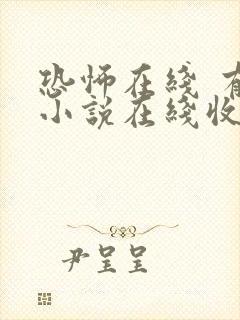 恐怖在綫 有
小説在綫收
尹呈呈